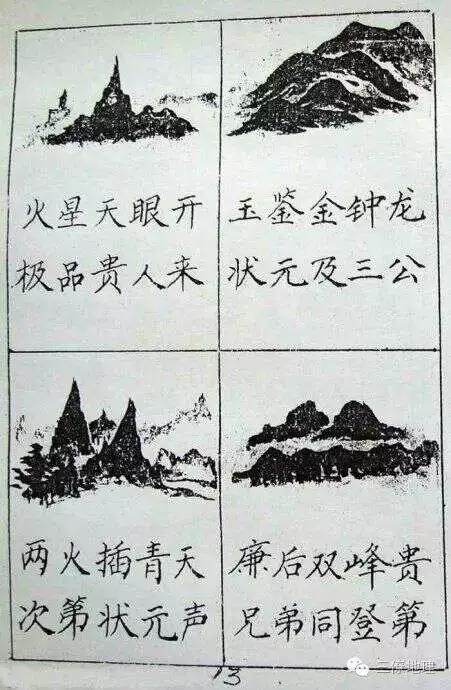 火星天眼开
极品贵人来
玉鉴金钟龙
状元及三公
两火插青天
次第状元声
廉后双峰贵
兄弟同登第
13
三停地理